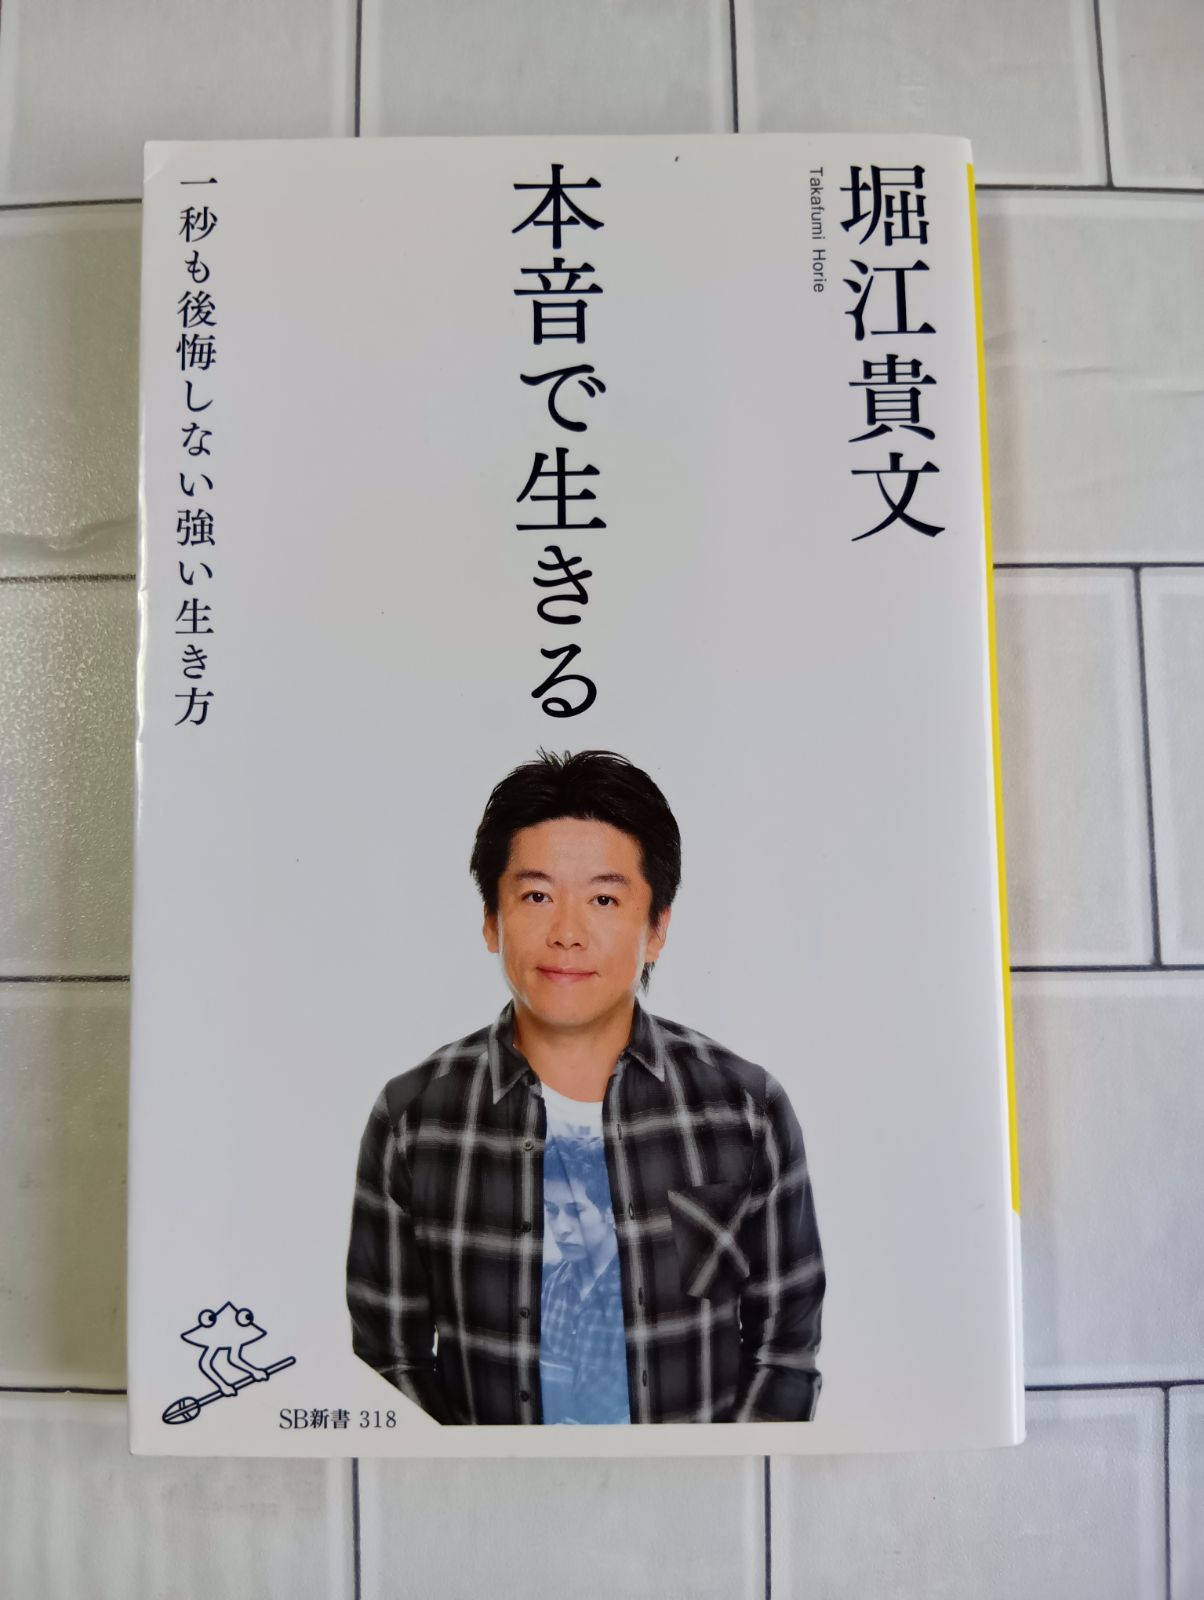 堀江貴文
Takafumi Horie
本音で生きる
一秒も後悔しない強い生き方
SB新書 318